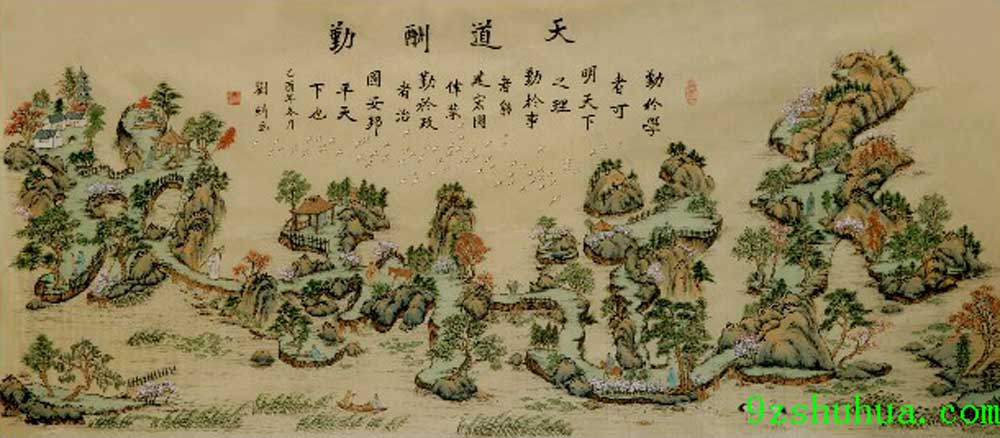 天道酬勤
勤於學
者可
明天下
之理
勤於事
者能
建宏圖
偉業
勤於政
者治
國安邦
平天
下也
乙酉年冬月
劉
9zshuhua.com